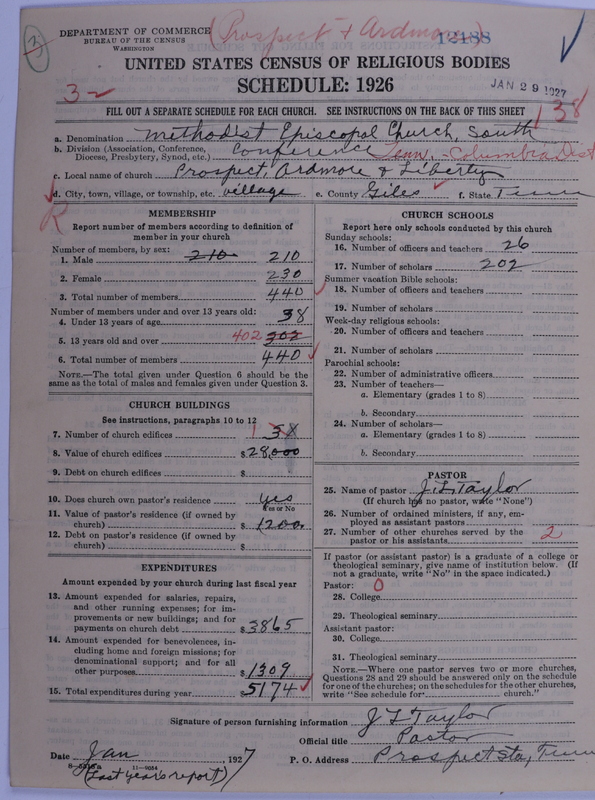 3
DEPARTMENT OF COMMERCE
BUREAU OF THE CENSUS
WASHINGTON
(Prospect & Ardmore)
12138
UNITED STATES CENSUS OF RELIGIOUS BODIES
SCHEDULE: 1926
JAN 29 1927
3
138
FILL OUT A SEPARATE SCHEDULE FOR EACH CHURCH. SEE INSTRUCTIONS ON THE BACK OF THIS SHEET
a. Denomination Methodist Episcopal Church, South
b. Division (Association, Conference, Diocese, Presbytery, Synod, etc.) Conference Tenn. Columbia Dist
c. Local name of church Prospect, Ardmore & Liberty
d. City, town, village, or township, etc. village e. County Giles f. State Tenn
R
MEMBERSHIP
Report number of members according to definition of
member in your church
Number of members, by sex:
1. Male 210 210
2. Female 230
3. Total number of members 440
Number of members under and over 13 years old:
4. Under 13 years of age 38
5. 13 years old and over 402 302
6. Total number of members 440
NOTE.—The total given under Question 6 should be the
same as the total of males and females given under Question 3.
CHURCH BUILDINGS
See instructions, paragraphs 10 to 12
7. Number of church edifices
8. Value of church edifices $28,000
9. Debt on church edifices $
10. Does church own pastor's residence yes
Yes or No
11. Value of pastor's residence (if owned by
church) $1200
12. Debt on pastor's residence (if owned by
church) $
EXPENDITURES
Amount expended by your church during last fiscal year
13. Amount expended for salaries, repairs,
and other running expenses; for im-
provements or new buildings; and for
payments on church debt $3865
14. Amount expended for benevolences, in-
cluding home and foreign missions; for
denominational support; and for all
other purposes $1309
15. Total expenditures during year $5174
CHURCH SCHOOLS
Report here only schools conducted by this church
Sunday schools:
16. Number of officers and teachers 26
17. Number of scholars 202
Summer vacation Bible schools:
18. Number of officers and teachers
19. Number of scholars
Week-day religious schools:
20. Number of officers and teachers
21. Number of scholars
Parochial schools:
22. Number of administrative officers
23. Number of teachers—
a. Elementary (grades 1 to 8)
b. Secondary
24. Number of scholars—
a. Elementary (grades 1 to 8)
b. Secondary
PASTOR
25. Name of pastor J. L. Taylor
(If church has no pastor, write "None")
26. Number of ordained ministers, if any, em-
ployed as assistant pastors
27. Number of other churches served by the
pastor or his assistants 2
If pastor (or assistant pastor) is a graduate of a college or
theological seminary, give name of institution below. (If
not a graduate, write "No" in the space indicated.)
Pastor: 0
28. College
29. Theological seminary
Assistant pastor:
30. College
31. Theological seminary
NOTE.—Where one pastor serves two or more churches,
Questions 28 and 29 should be answered only on the schedule
for one of the churches; on the schedules for the other churches,
write "See schedule for church."
Signature of person furnishing information J L Taylor
Official title Pastor
Date Jan 1927 P. O. Address Prospect Sta, Tenn
11—9054
(Last year's report)